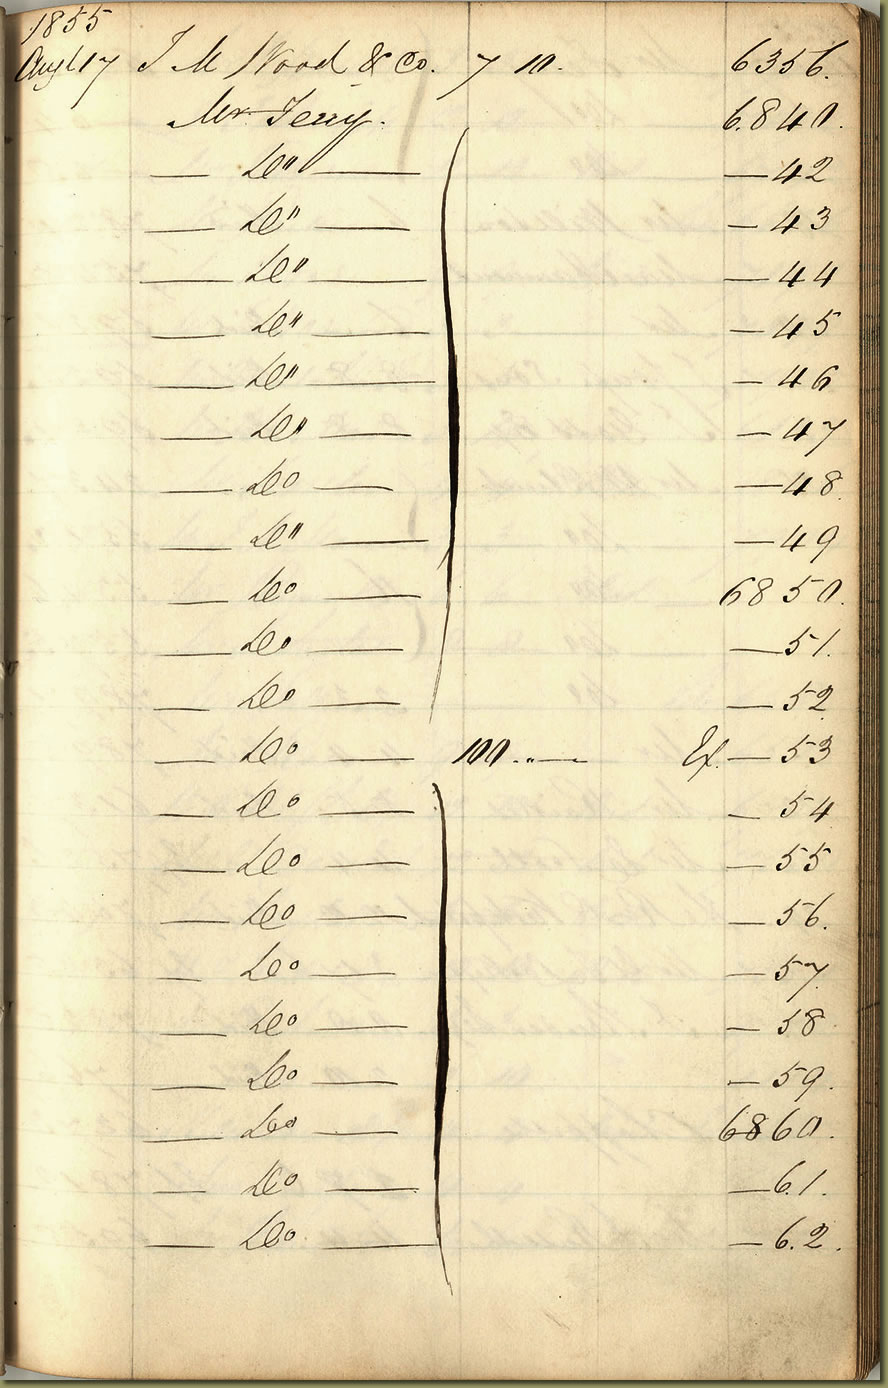 1855
Augt 17 J M Wood & Co. 7 10. 6356.
Mr. Terry. 6.840.
— Do" — — 42
— Do" — — 43
— Do" — — 44
— Do" — — 45
— Do" — — 46
— Do" — — 47
— Do — — 48
— Do" — — 49
— Do — 6850.
— Do — — 51.
— Do — — 52
— Do — 100.."— Ex. — 53
— Do — — 54
— Do — — 55
— Do — — 56.
— Do — — 57
— Do — — 58
— Do — — 59.
— Do — 6860.
— Do — — 61.
— Do — — 6.2.